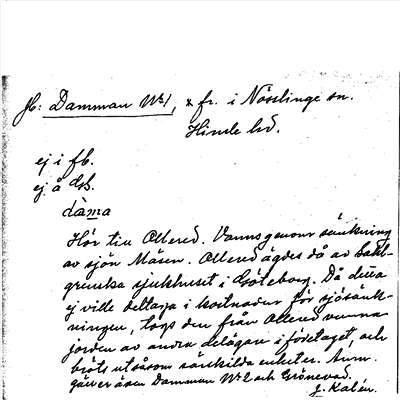 Jb: Damman Nr 1, x fr. i Nösslinge sn.
Himle hd.
ej i fb.
ej å Gb.
dàma
Hör till Ollered. Vanns genom sänkning
av sjön Mäsen. Ollered ägdes då av Sahl-
grenska sjukhuset i Göteborg. Då detta
ej ville deltaga i kostnader för sjösänk-
ningen, togs den från Ollered vunna
jorden av andra delägare i företaget, och
bröts ut såsom särskilda enheter. Anm.
gäller även Damman Nr 2 och Gröneved.
J. Kalén.